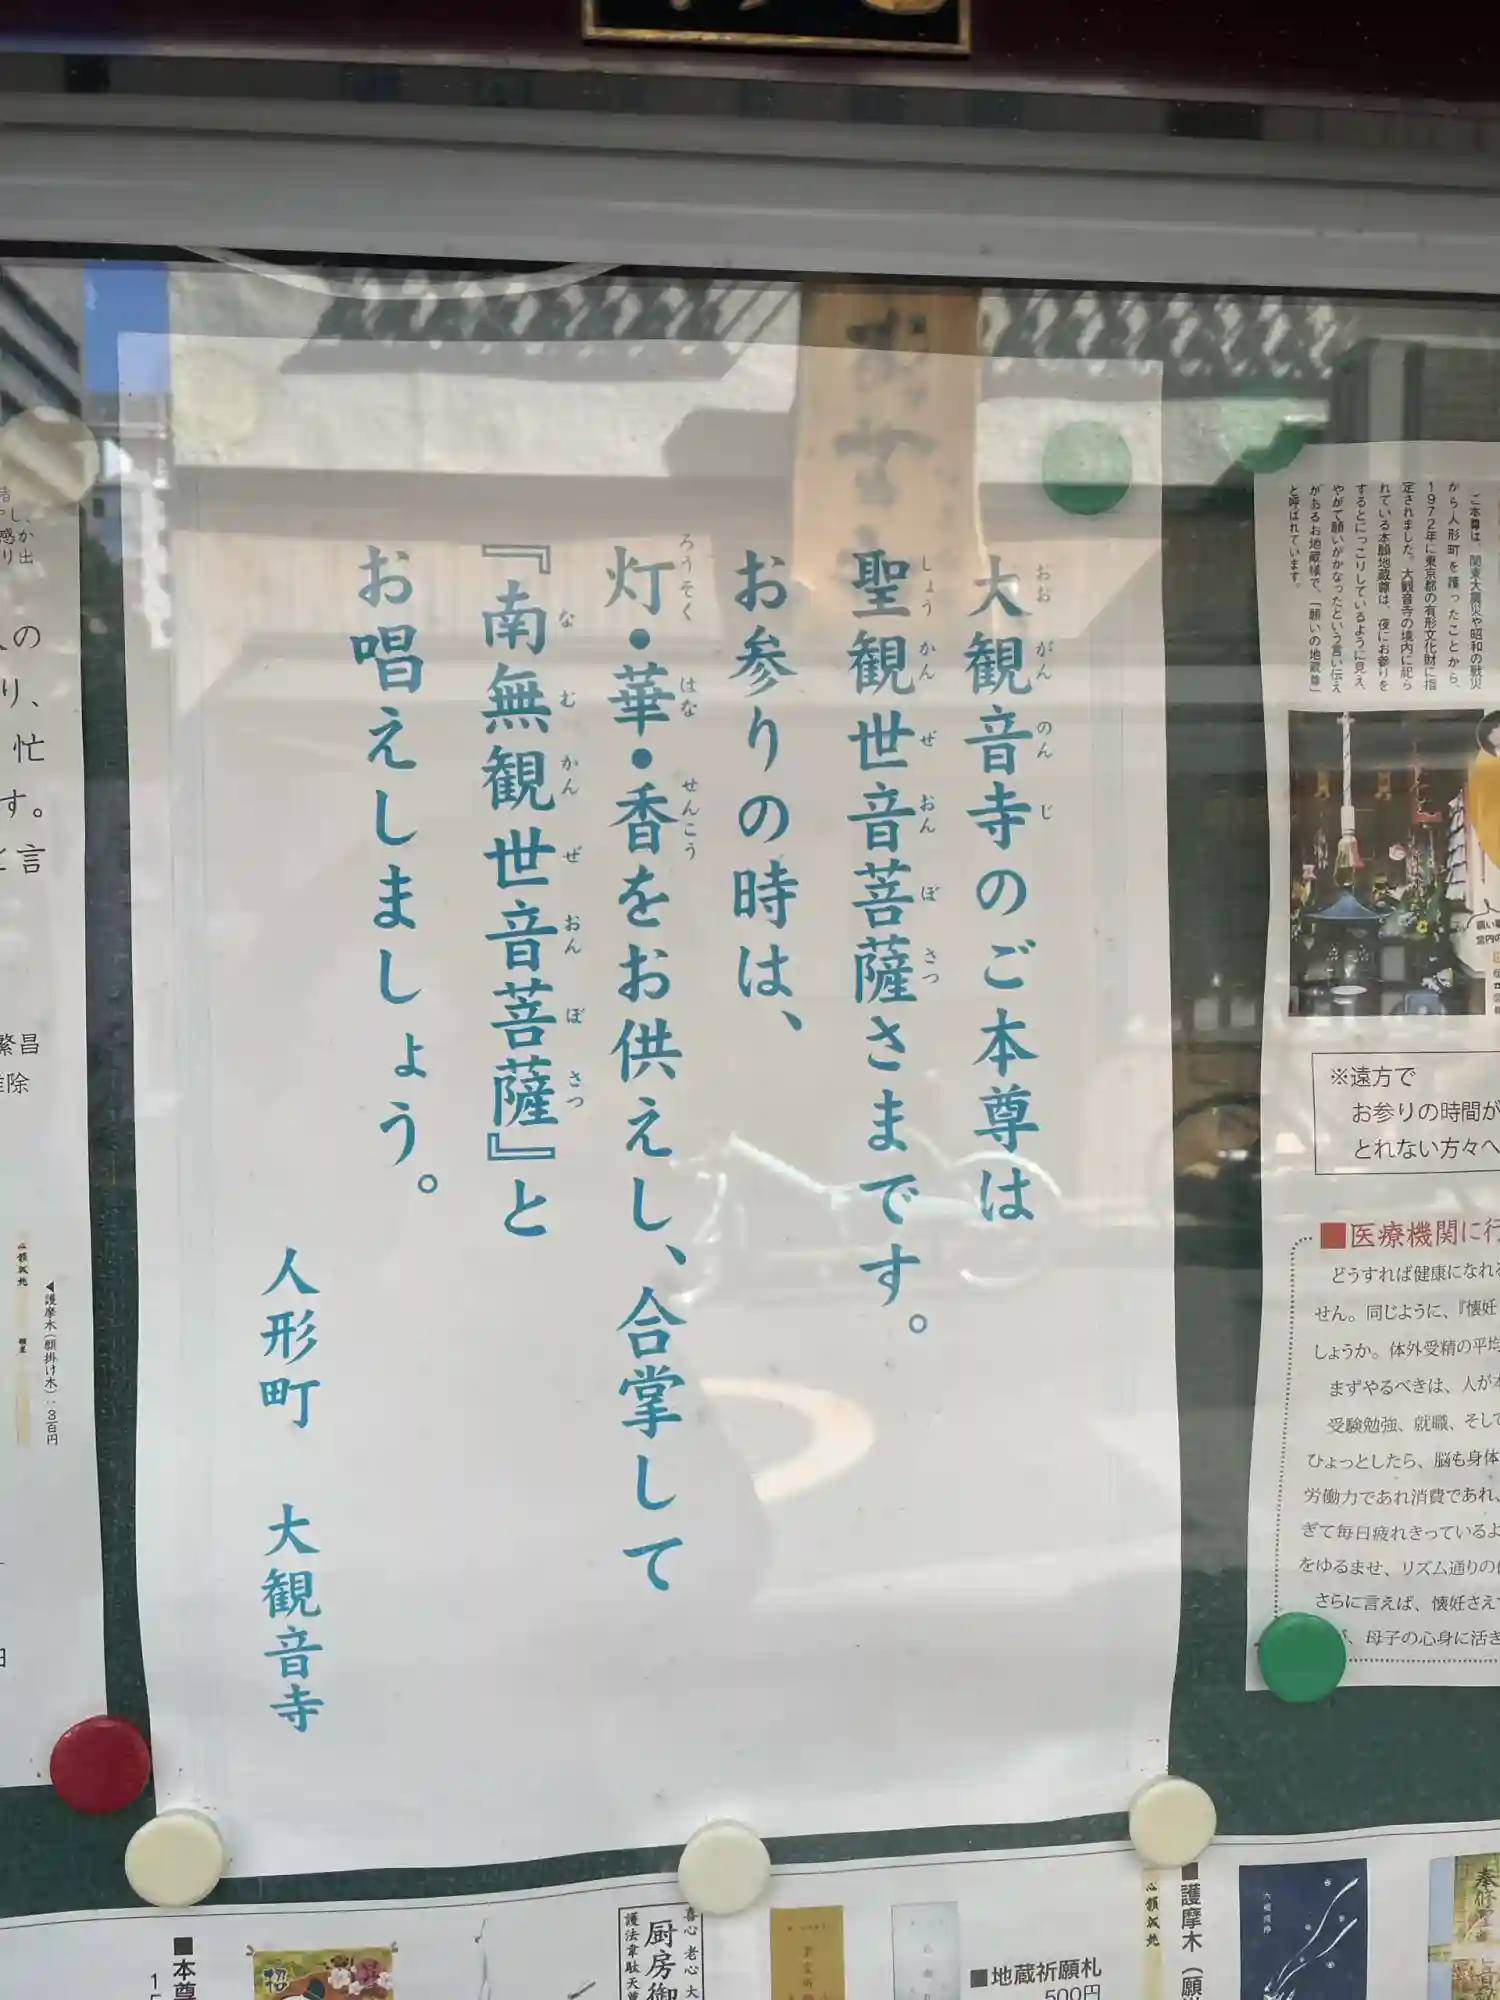 大観音寺のご本尊は
聖観世音菩薩さまです。
お参りの時は、
灯・華・香をお供えし、合掌して
『南無観世音菩薩』と
お唱えしましょう。
人形町 大観音寺
おお がん のん じ
しょう かん ぜ おん ぼ さつ
ろうそく はな せんこう
な む かん ぜ おん ぼ さつ
ご本尊は、関東大震災や昭和の戦災
から人形町を護ったことから、
1972年に東京都の有形文化財に指
定されました。大観音寺の境内に祀ら
れている本願地蔵尊は、夜にお参りを
するとにっこりしているように見え、
やがて願いがかなったという言い伝え
があるお地蔵様で、「願いの地蔵尊」
と呼ばれています。
※遠方で
お参りの時間が
とれない方々へ
■医療機関に行
どうすれば健康になれる
せん。同じように、『懐妊
しょうか。体外受精の平均
まずやるべきは、人が本
受験勉強、就職、そして
ひょっとしたら、脳も身体
労働力であれ消費であれ、
ぎて毎日疲れきっているよ
をゆるませ、リズム通りの
さらに言えば、懐妊さえ
、母子の心身に活き
の
り、
忙
す。
と言
繁昌
除
◀護摩木(願掛け木):3百円
■本尊
厨房御
喜心 老心 大
護法韋駄天尊
■地蔵祈願札
500円
■護摩木(願